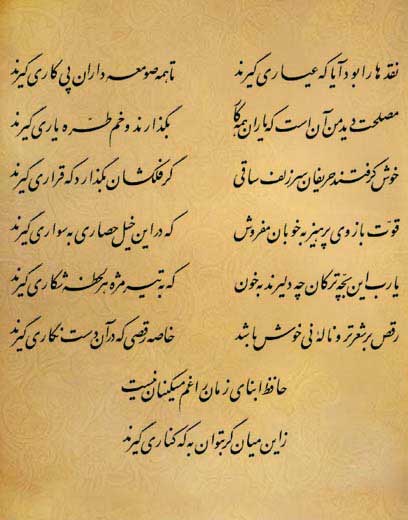 نقدها را بود آیا که عیاری گیرند تا همه صومعه داران پی کاری گیرند
مصلحت دید من آن است که یاران همه کار بگذارند و خم طرّه یاری گیرند
خوش گرفتند حریفان سر زلف ساقی گر فلکشان بگذارد که قراری گیرند
قوّت بازوی پرهیز به خوبان مفروش که در این خیل حصاری به سواری گیرند
یارب این بچّه ترکان چه دلیرند به خون که به تیر مژه هر لحظه شکاری گیرند
رقص بر شعر تر و ناله نی خوش باشد خاصه رقصی که در آن دست نگاری گیرند
حافظ ابنای زمان را غم مسکینان نیست
زاین میان گر بتوان به که کناری گیرند